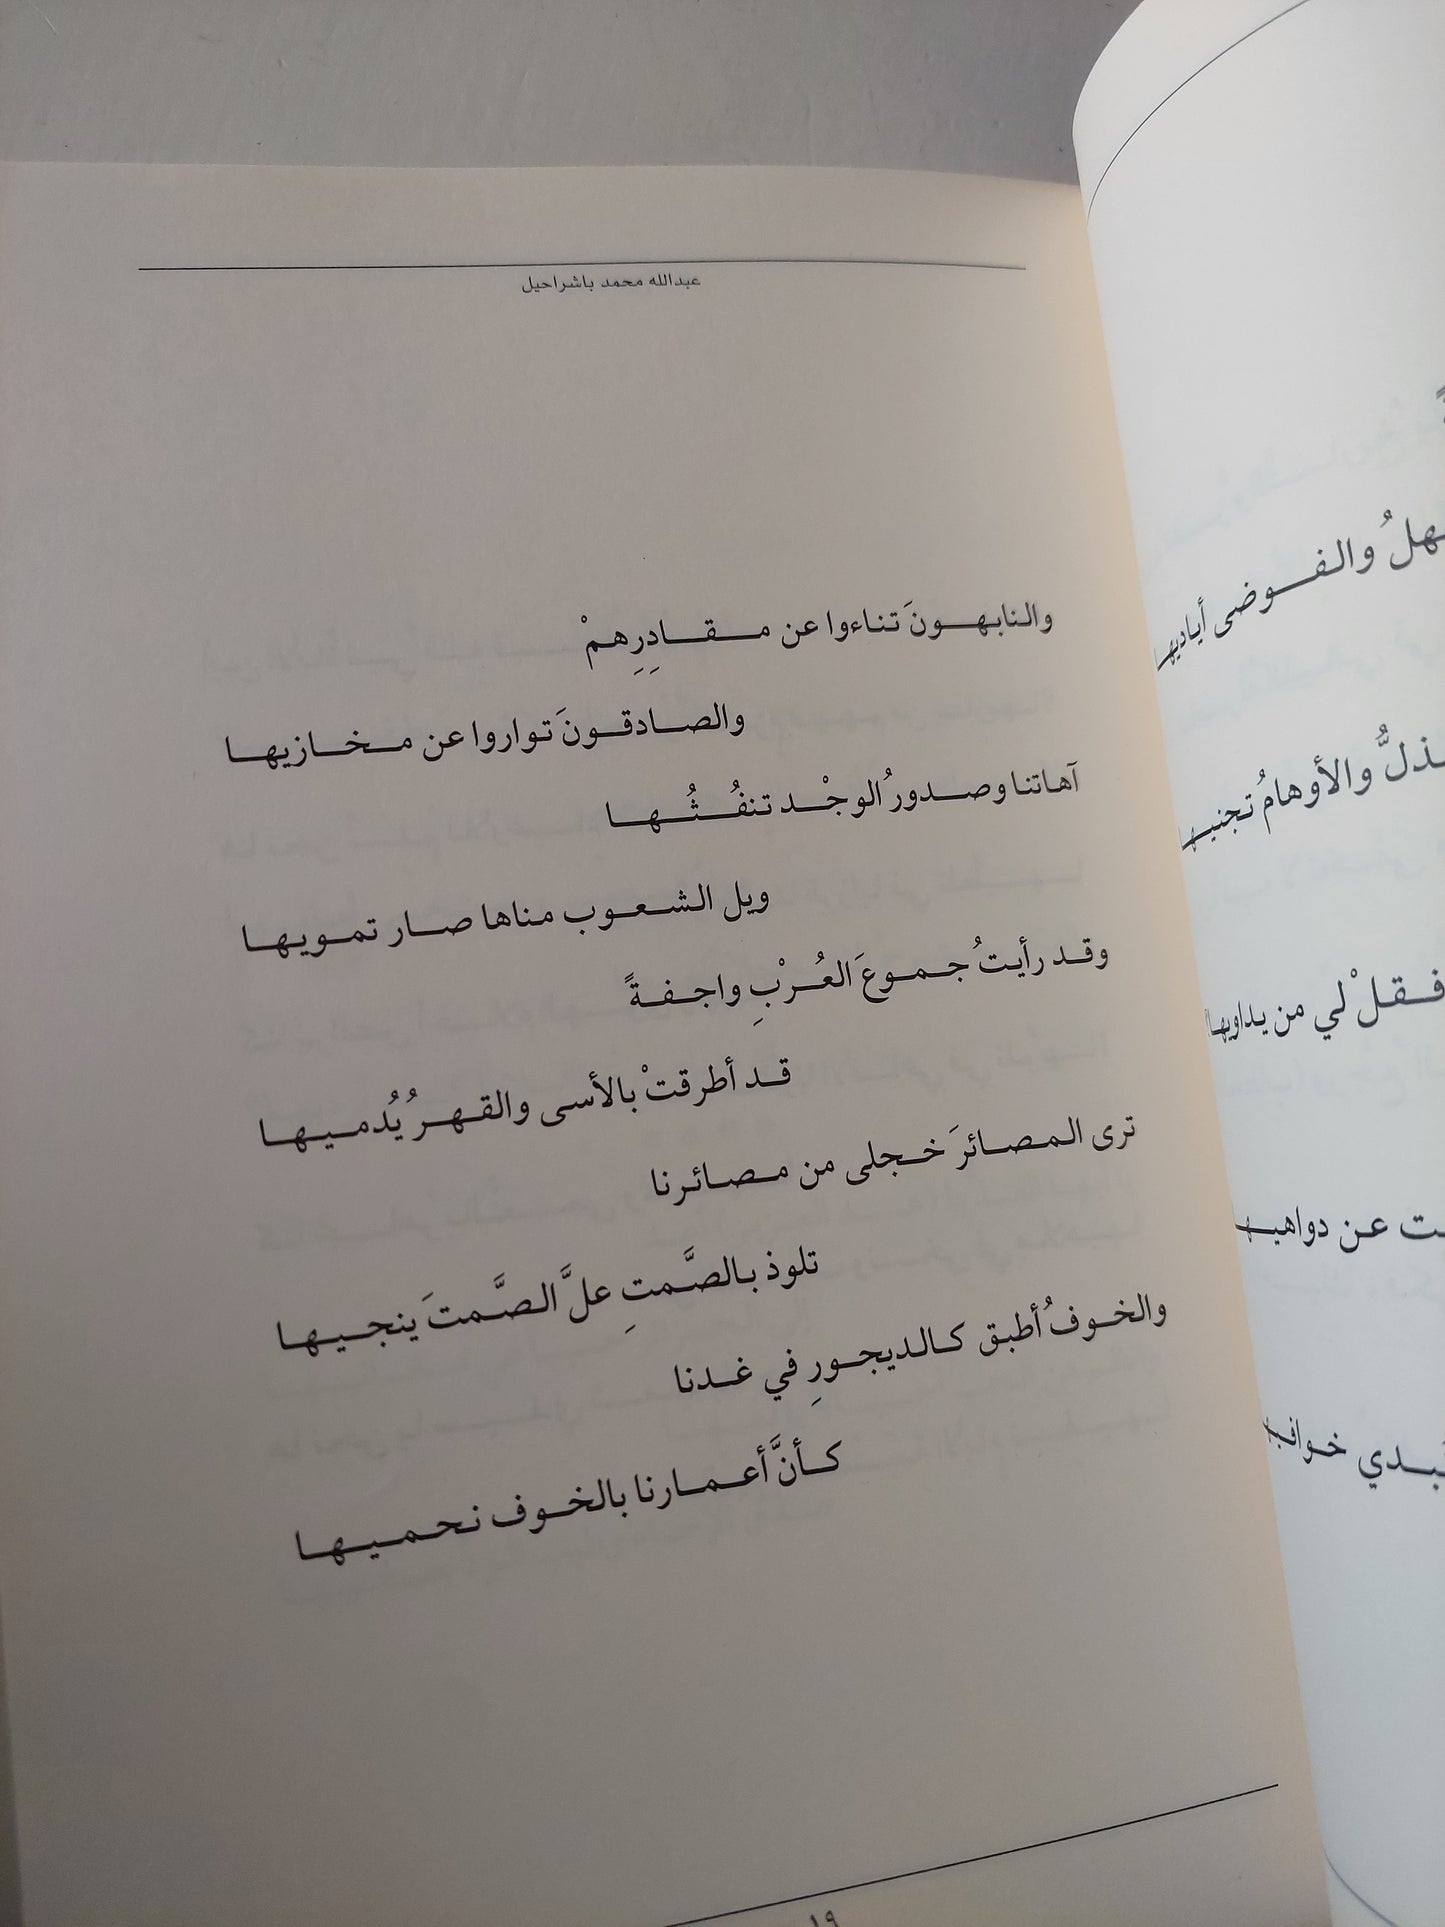 عبدالله محمد باشراحيل
والنابهونَ تناءوا عن مقادِرِهمْ
والصادقونَ تواروا عن مخازيها
آهاتنا وصدورُ الوجْد تنفُثُها
ويل الشعوب مناها صار تمويها
وقد رأيتُ جموعَ العُرْبِ واجفةً
قد أطرقتْ بالأسى والقهرُ يُدميها
ترى المصائرَ خجلى من مصائرنا
تلوذ بالصَّمتِ علَّ الصَّمتَ ينجيها
والخوفُ أطبق كالديجورِ في غدنا
كأنَّ أعمارنا بالخوف نحميها
١٩
والفوضى أياديها
والأوهامُ تجنيها
فقلْ لي من يداويها
عن دواهيها